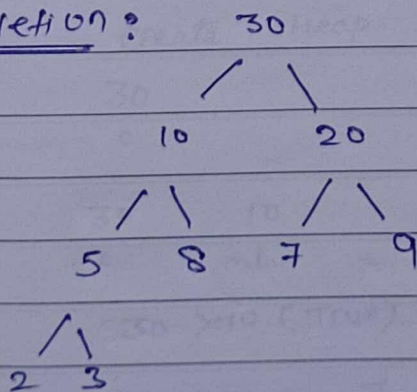 etion: 30
10 20
5 8 7 9
2 3